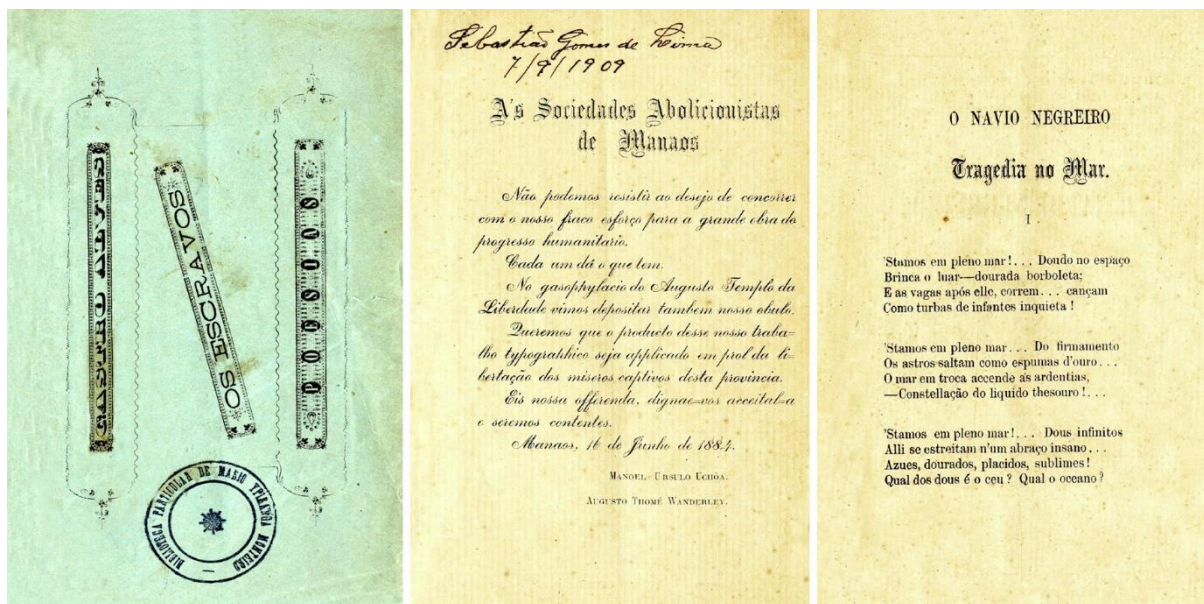 CASTRO ALVES
OS ESCRAVOS
BIBLIOTECA PARTICULAR DE MARIO YPIRANGA MONTEIRO
Sebastião Gomes de Lima
7/9/1909
A's Sociedades Abolicionistas
de Manaos
Não podemos resistir ao desejo de concorrer
com o nosso fraco esforço para a grande obra do
progresso humanitario.
Cada um dá o que tem.
No gasophylacio do Augusto Templo da
Liberdade vimos depositar tambem nosso obulo.
Queremos que o producto desse nosso traba=
lho typographico seja applicado em prol da li=
bertação dos miseros captivos desta provincia.
Eis nossa offerenda, dignae=vos acceital=a
e seremos contentes.
Manaos, 16 de Junho de 1884.
MANOEL URSULO UCHÔA.
AUGUSTO THOMÉ WANDERLEY.
O NAVIO NEGREIRO
Tragedia no Mar.
I
'Stamos em pleno mar!... Doudo no espaço
Brinca o luar—dourada borboleta;
E as vagas após elle, correm... cançam
Como turbas de infantes inquieta!
'Stamos em pleno mar... Do firmamento
Os astros saltam como espumas d'ouro...
O mar em troca accende as ardentias,
—Constellação do liquido thesouro!...
'Stamos em pleno mar!... Dous infinitos
Alli se estreitam n'um abraço insano...
Azues, dourados, placidos, sublimes!
Qual dos dous é o ceu? Qual o oceano?